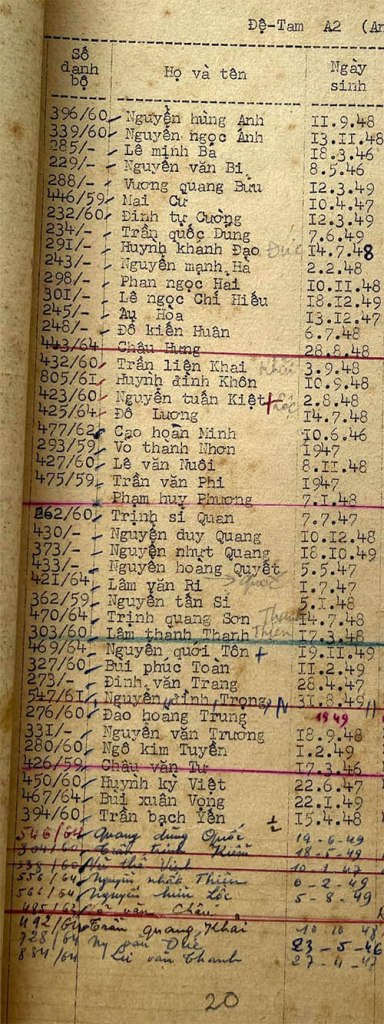 Đệ-Tam A2 (An
Số danh bộ Họ và tên Ngày sinh
396/60 Nguyễn hùng Anh 11.9.48
339/60 Nguyễn ngọc Ánh 13.11.48
285/- Lê minh Bá 18.3.46
229/- Nguyễn văn Bi 8.5.46
288/- Vương quang Bửu 12.3.49
446/59 Mai Cư 10.4.47
232/60 Đinh tự Cường 12.3.49
234/- Trần quốc Dũng 7.6.49
291/- Huynh khánh Đạo Đức 14.7.48
243/- Nguyễn mạnh Hà 2.2.48
298/- Phan ngọc Hai 10.11.48
301/- Lê ngọc Chí Hiếu 18.12.49
245/- Âu Hòa 13.12.47
248/- Đỗ kiến Huân 6.7.48
443/64 Châu Hưng 28.8.48
432/60 Trần liện Khai 3.9.48
805/61 Huynh đình Khôn 10.9.48
423/60 Nguyễn tuấn Kiệt 2.8.48
425/64 Đỗ Lương 14.7.48
477/62 Cao hoàn Minh 10.6.46
293/59 Võ thanh Nhơn 1947
427/60 Lê văn Nuôi 8.11.48
475/59 Trần văn Phi 1947
Phạm huy Phương 7.1.48
262/60 Trịnh sĩ Quan 7.7.47
430/- Nguyễn duy Quang 10.12.48
373/- Nguyễn nhựt Quang 18.10.49
433/- Nguyễn hoàng Quyết 5.5.47
421/64 Lâm văn Ri 1.7.47
362/59 Nguyễn tấn Sĩ 5.1.48
470/64 Trịnh quang Sơn 14.7.48
303/60 Lâm thanh Thanh Thiện 17.3.48
469/64 Nguyễn quới Tôn + 19.11.49
327/60 Bùi phúc Toàn 11.2.49
273/- Đinh văn Trang 28.4.47
547/61 Nguyễn đình Trọng 31.8.49
276/60 Đào hoàng Trung 1949
331/- Nguyễn văn Trương 18.9.48
280/60 Ngô kim Tuyền 1.2.49
426/59 Châu văn Tư 17.3.46
450/60 Huỳnh kỳ Việt 22.6.47
467/64 Bùi xuân Vọng 22.1.49
394/60 Trần bạch Yến 15.4.48
546/64 Quang dũng Quốc 19-6-49
Trần trinh Kiểm 18-5-49
556/64 Nguyễn nhất Thiện 6-2-49
Nguyễn hữu Lộc 5-8-49
văn Châu
492/64 Trần quang Khải 10 10 48
728/64 23-5-46
834/64 Lê văn Thanh
20